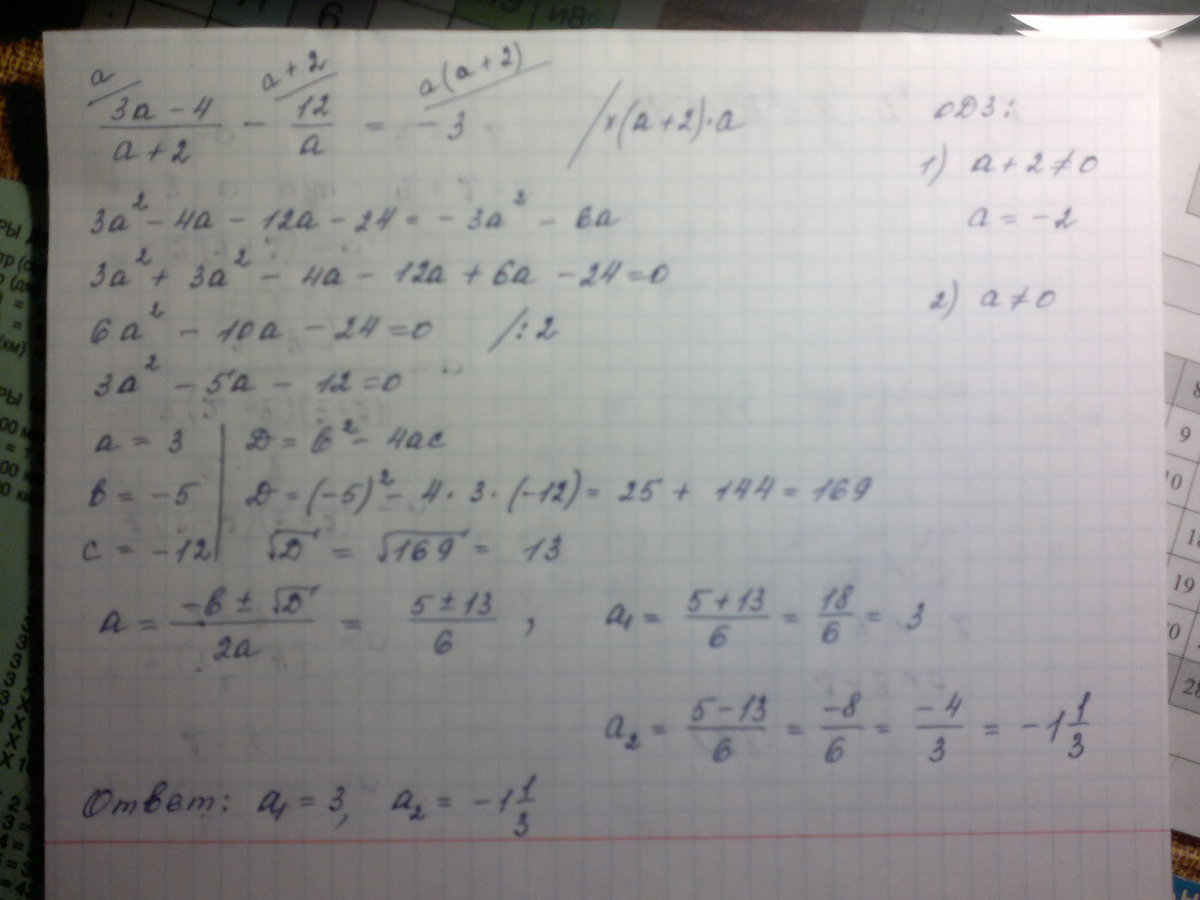 a a+2 a(a+2)
(3a-4)/(a+2) - 12/a = -3 /×(a+2)·a
ОДЗ:
1) a+2≠0
a = -2
2) a≠0
3a² - 4a - 12a - 24 = -3a² - 6a
3a² + 3a² - 4a - 12a + 6a - 24 = 0
6a² - 10a - 24 = 0 /:2
3a² - 5a - 12 = 0
a = 3 | D = b² - 4ac
b = -5 | D = (-5)² - 4·3·(-12) = 25 + 144 = 169
c = -12 | √D = √169 = 13
a = (-b ± √D)/2a = (5 ± 13)/6 , a₁ = (5+13)/6 = 18/6 = 3
a₂ = (5-13)/6 = -8/6 = -4/3 = -1 1/3
Ответ: a₁ = 3, a₂ = -1 1/3
8
9
10
18
19
20
28